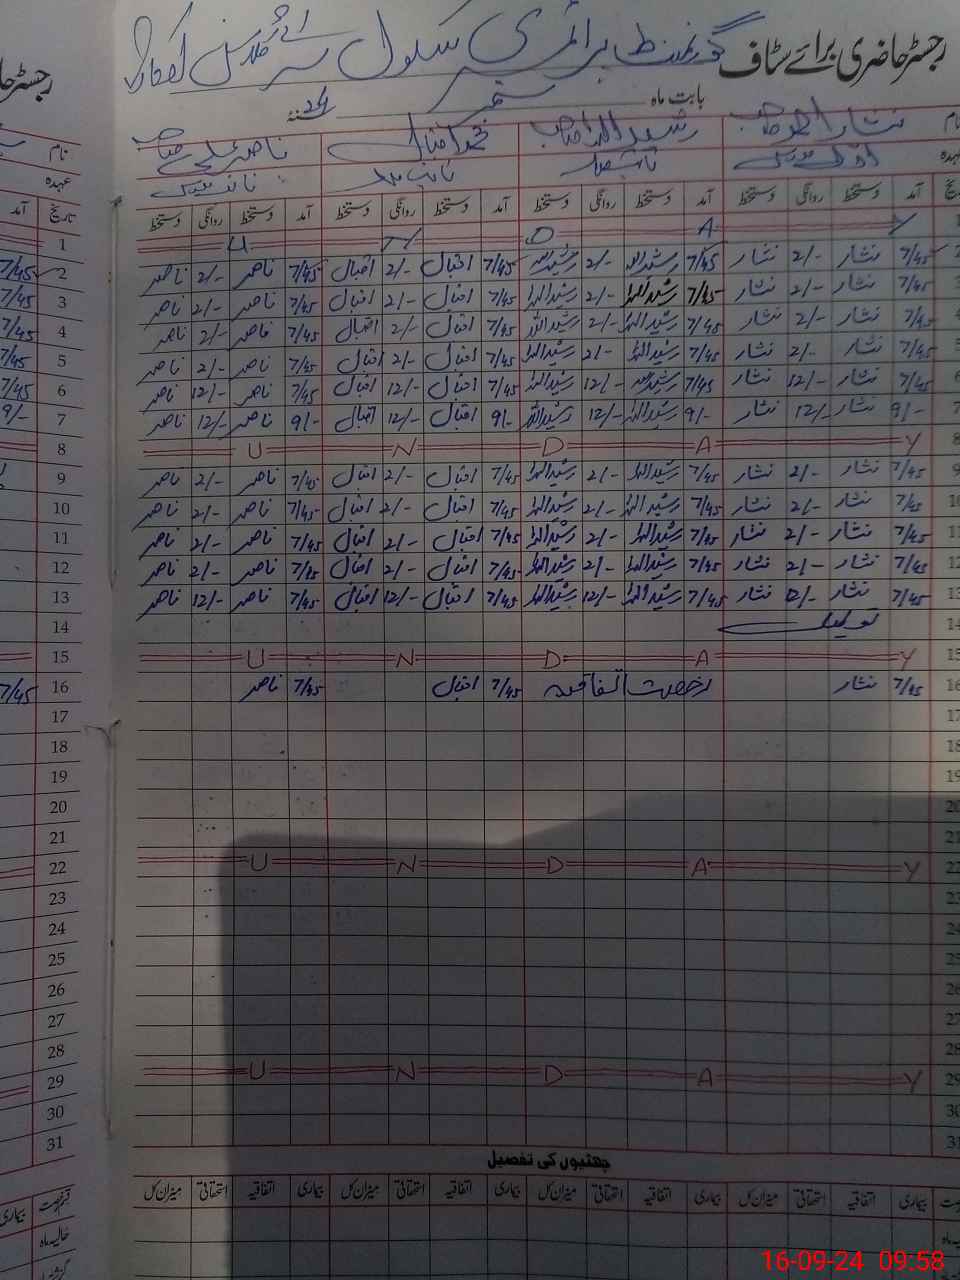 رجسٹر حاضری برائے سٹاف گورنمنٹ پرائمری سکول
بابت ماہ ستمبر 24 سنہ
نام نثار احمد صاحب رشید اللہ صاحب محمد اقبال ناصر علی صاحب
عہدہ
تاریخ آمد دستخط روانگی دستخط آمد دستخط روانگی دستخط آمد دستخط روانگی دستخط آمد دستخط روانگی دستخط
1 U N D A Y
2 7/45 نثار 2/- نثار 7/45 رشید اللہ 2/- رشید اللہ 7/45 اقبال 2/- اقبال 7/45 ناصر 2/- ناصر
3 7/45 نثار 2/- نثار 7/45 رشید اللہ 2/- رشید اللہ 7/45 اقبال 2/- اقبال 7/45 ناصر 2/- ناصر
4 7/45 نثار 2/- نثار 7/45 رشید اللہ 2/- رشید اللہ 7/45 اقبال 2/- اقبال 7/45 ناصر 2/- ناصر
5 7/45 نثار 2/- نثار 7/45 رشید اللہ 2/- رشید اللہ 7/45 اقبال 2/- اقبال 7/45 ناصر 2/- ناصر
6 7/45 نثار 12/- نثار 7/45 رشید اللہ 12/- رشید اللہ 7/45 اقبال 12/- اقبال 7/45 ناصر 12/- ناصر
7 9/- نثار 12/- نثار 9/- رشید اللہ 12/- رشید اللہ 9/- اقبال 12/- اقبال 9/- ناصر 12/- ناصر
8 U N D A Y
9 7/45 نثار 2/- نثار 7/45 رشید اللہ 2/- رشید اللہ 7/45 اقبال 2/- اقبال 7/45 ناصر 2/- ناصر
10 7/45 نثار 2/- نثار 7/45 رشید اللہ 2/- رشید اللہ 7/45 اقبال 2/- اقبال 7/45 ناصر 2/- ناصر
11 7/45 نثار 2/- نثار 7/45 رشید اللہ 2/- رشید اللہ 7/45 اقبال 2/- اقبال 7/45 ناصر 2/- ناصر
12 7/45 نثار 2/- نثار 7/45 رشید اللہ 2/- رشید اللہ 7/45 اقبال 2/- اقبال 7/45 ناصر 2/- ناصر
13 7/45 نثار نثار 7/45 رشید اللہ 12/- رشید اللہ 7/45 اقبال 12/- اقبال 7/45 ناصر 12/- ناصر
14 تعطیل
15 U N D A Y
16 7/45 نثار رخصت اتفاقیہ 7/45 اقبال 7/45 ناصر
17
18
19
20
21
22 U N D A Y
23
24
25
26
27
28
29 U N D A Y
30
31
چھٹیوں کی تفصیل
قسم رخصت بیماری اتفاقیہ استحقاقی میزان کل بیماری اتفاقیہ استحقاقی میزان کل بیماری اتفاقیہ استحقاقی میزان کل بیماری اتفاقیہ استحقاقی میزان کل
حالیہ ماہ
16-09-24 09:58